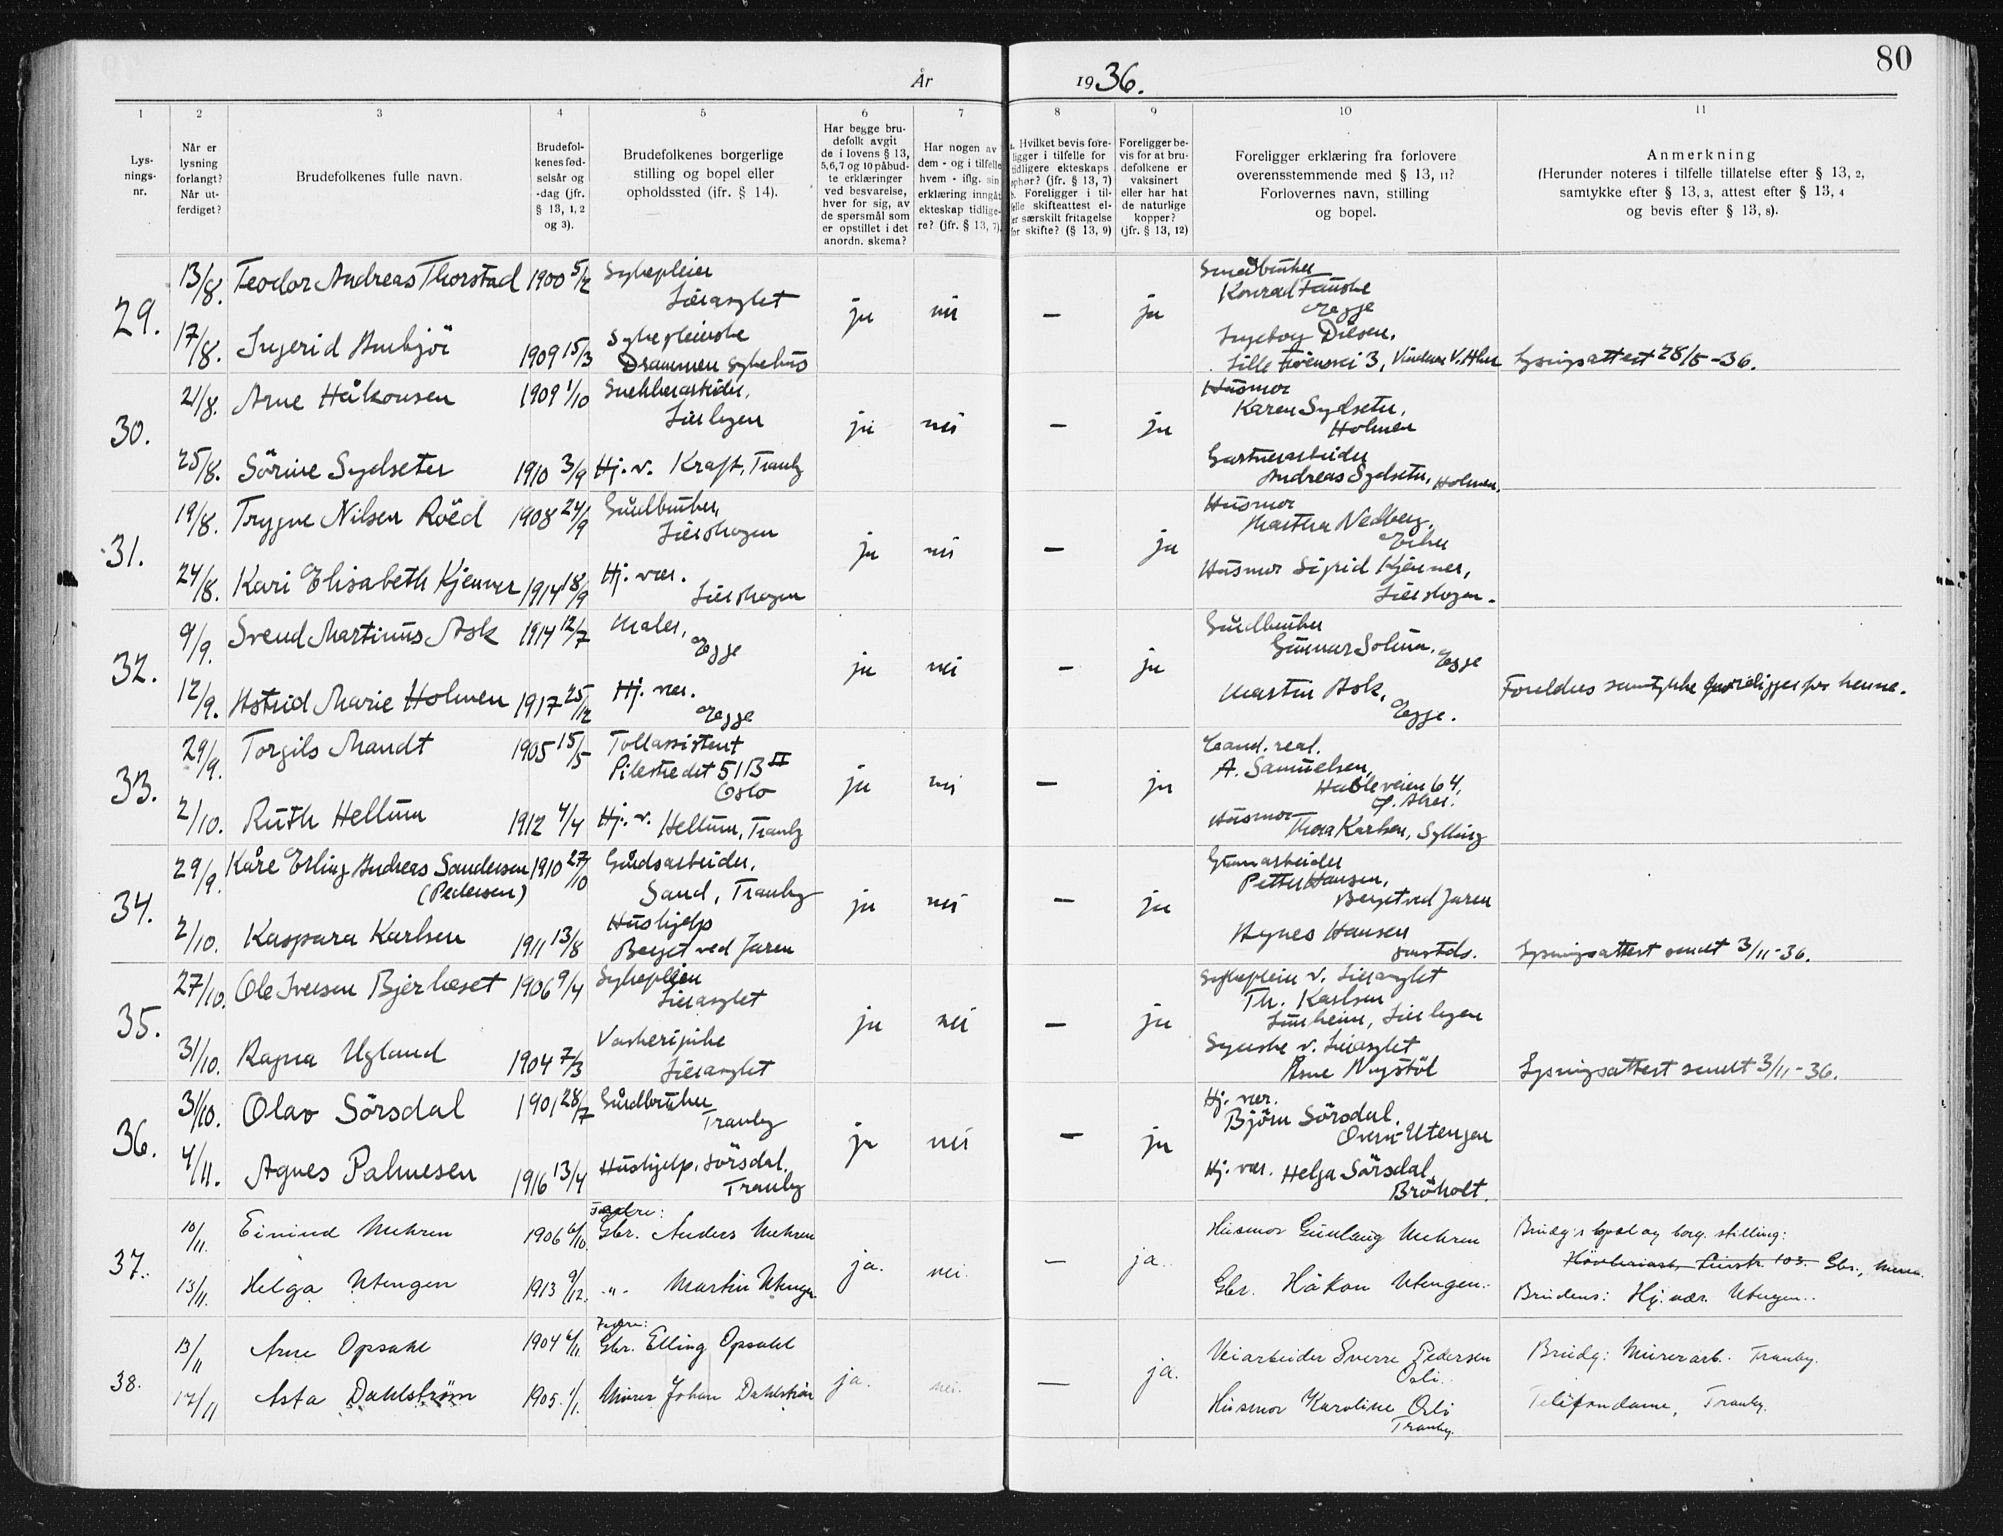 80
År 1936.
1 2 3 4 5 6 7 8 9 10 11
Lys-
nings-
nr.
Når er
lysning
forlangt?
Når ut-
ferdiget?
Brudefolkenes fulle navn.
Brudefol-
kenes fød-
selsår og
-dag (jfr.
§ 13, 1, 2
og 3).
Brudefolkenes borgerlige
stilling og bopel eller
opholdssted (jfr. § 14).
Har begge bru-
defolk avgit
de i lovens § 13,
5, 6, 7 og 10 påbud-
te erklæringer
ved besvarelse,
hver for sig, av
de spørsmål som
er opstillet i det
anordn. skema?
Har nogen av
dem - og i tilfelle
hvem - iflg. sin
erklæring inngåt
ekteskap tidlige-
re? (jfr. § 13, 7).
a. Hvilket bevis fore-
ligger i tilfelle for
tidligere ekteskaps
ophør? (jfr. § 13, 7)
b. Foreligger i til-
felle skifteattest el-
ler særskilt fritagelse
for skifte? (§ 13, 9)
Foreligger be-
vis for at bru-
defolkene er
vaksinert
eller har hat
de naturlige
kopper?
(jfr. § 13, 12)
Foreligger erklæring fra forlovere
overensstemmende med § 13, 11?
Forlovernes navn, stilling
og bopel.
Anmerkning
(Herunder noteres i tilfelle tillatelse efter § 13, 2,
samtykke efter § 13, 3, attest efter § 13, 4
og bevis efter § 13, 8).
29.
13/8. Teodor Andreas Thorstad 1900 5/12 Sykepleier
Lierasylet
ja nei — ja
Konrad Fauske
Egge
17/8. Ingerid Aubjör 1909 15/3 Sykepleierske
Drammen sykehus
Ingeborg Olsen,
Lysingsattest 28/5-36.
30.
21/8. Arne Håkonsen 1909 1/10 Snekkerarbeider,
Lierbyen
ja nei — ja
Husmor
Karen Sydseter,
Holmen
25/8. Sörine Sydseter 1910 3/9 Hj. v. Kraft, Tranby
Gartnerarbeider
Andreas Sydseter, Holmen.
31.
19/8. Trygve Nilsen Röed 1908 24/9 Gårdbruker,
Lierskogen
ja nei — ja
Husmor
Martha Nedberg,
24/8. Kari Elisabeth Kjenner 1914 18/9 Hj. vær.
Lierskogen
Husmor Sigrid Kjenner,
Lierskogen.
32.
9/9. Svend Martinus Ask 1914 12/7 Maler,
Egge
ja nei — ja
Gårdbruker
Gunnar Solum,
Egge
12/9. Astrid Marie Holmen 1917 25/12 Hj. vær.
Egge
Martin Ask,
Egge.
Foreldres samtykke foreligger for henne.
33.
29/9. Torgils Mandt 1905 15/5 Tollassistent
Pilestredet 51B II
Oslo
ja nei — ja
Cand. real.
A. Samuelsen,
64,
Ø. Aker.
2/10. Ruth Hellum 1912 4/4 Hj. v. Hellum, Tranby
Husmor
Thora Karlsen, Sylling
34.
29/9. Kåre Erling Andreas Sandersen
(Pedersen)
1910 27/10 Gårdsarbeider,
Sand, Tranby
ja nei — ja
Petter Hansen,
Berget ved Jaren
2/10. Kaspara Karlsen 1911 13/8 Hushjelp
Berget ved Jaren
Agnes Hansen
smstds.
Lysningsattest sendt 3/11-36.
35.
27/10. Ole Iversen Bjerkeset 1906 9/4 Sykepleier
Lierasylet
ja nei — ja
Sykepleier v. Lierasylet
Th. Karlsen
Lierbyen
31/10. Ragna Ugland 1904 7/3 Vaskeripike
Lierasylet
Syerske v. Lierasylet
Åsne Nystöl
Lysningsattest sendt 3/11-36.
36.
31/10. Olav Sörsdal 1901 28/7 Gårdbruker
Tranby
ja nei — ja
Hj. vær.
Björn Sörsdal,
Övern-Utengen
4/11. Agnes Palmesen 1916 13/4 Hushjelp, Sörsdal.
Tranby
Hj. vær. Helga Sörsdal,
Bröholt.
37.
10/11. Eivind Mehren 1906 6/10. Gbr. Anders Mehren
ja. nei. — ja.
Husmor Gunlaug Mehren
Brudg's bopel og borg. stilling:
Gbr.,
13/11. Helga Utengen 1913 9/12. -"- Martin Utengen
Gbr. Håkon Utengen.
Brudens: Hj. vær. Utengen.
38.
13/11 Arne Opsahl 1904 6/11. Fedre:
Gbr. Elling Opsahl
ja. nei. — ja.
Veiarbeider Sverre Pedersen
Osli.
Brudg: Murerarb. Tranby.
17/11 Asta Dahlström 1905 1/1. Murer Johan Dahlström
Husmor Karoline Osli
Tranby.
Telefondame, Tranby.